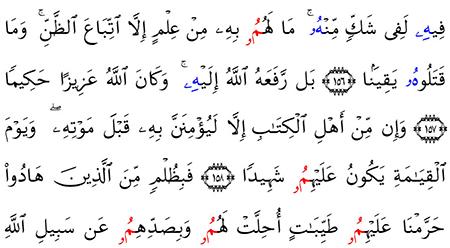 فِيهِۦ لَفِى شَكٍّ مِّنْهُۥ ۚ مَا لَهُمُۥ بِهِۦ مِنْ عِلْمٍ إِلَّا ٱتِّبَاعَ ٱلظَّنِّ ۚ وَمَا
قَتَلُوهُۥ يَقِينًۢا ﴿١٥٦﴾ بَل رَّفَعَهُ ٱللَّهُ إِلَيْهِۦ ۚ وَكَانَ ٱللَّهُ عَزِيزًا حَكِيمًا
﴿١٥٧﴾ وَإِن مِّنْ أَهْلِ ٱلْكِتَـٰبِ إِلَّا لَيُؤْمِنَنَّ بِهِۦ قَبْلَ مَوْتِهِۦ ۖ وَيَوْمَ
ٱلْقِيَـٰمَةِ يَكُونُ عَلَيْهِمُۥ شَهِيدًا ﴿١٥٨﴾ فَبِظُلْمٍ مِّنَ ٱلَّذِينَ هَادُوا۟
حَرَّمْنَا عَلَيْهِمُۥ طَيِّبَـٰتٍ أُحِلَّتْ لَهُمُۥ وَبِصَدِّهِمُۥ عَن سَبِيلِ ٱللَّهِ